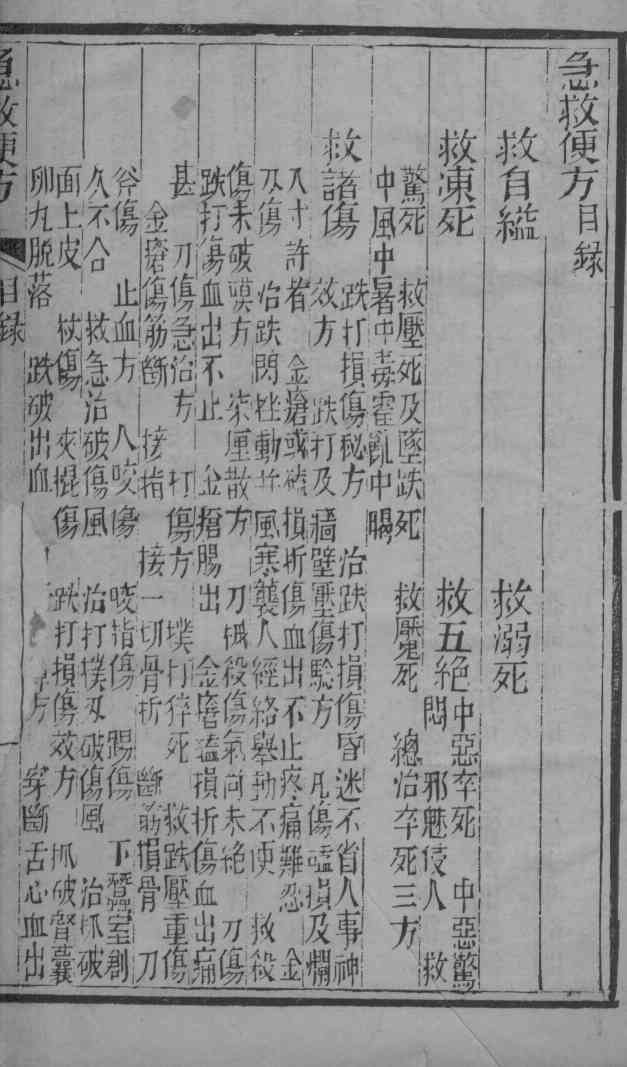 急救便方目録
救自縊 救溺死
救凍死 救五絶 中惡卒死 中惡驚
悶 邪魅侵人 救
驚死 救壓死及墜跌死 救魘死 總治卒死三方
中風中暑中毒霍亂中暍
救諸傷 跌打損傷秘方 治跌打損傷昏迷不省人事神
效方 跌打及牆壁壓傷騐方 凡傷磕損及爛
入寸許者 金瘡或磕損折傷血出不止疼痛難忍 金
刃傷 治跌閃挫動并風寒襲人經絡舉動不便 救殺
傷未破膜方 柒厘散方 刀械殺傷氣尚未絶 刀傷
跌打傷血出不止 金瘡腸出 金瘡磕損折傷血出痛
甚 刀傷急治方 打傷方 撲打猝死 救跌壓重傷
金瘡傷筋斷 接指 接一切骨折 斷筋損骨 刀
斧傷 止血方 人咬傷 咬指傷 踢傷 下蠶室創
久不合 救急治破傷風 治打撲刃破傷風 治抓破
面上皮 杖傷 夾棍傷 跌打損傷效方 抓破腎囊
卵丸脫落 跌破出血 方 穿斷舌心血出
急救便方 目録 一